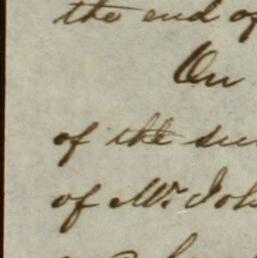 the end of
On
of the
of Mr. Joh